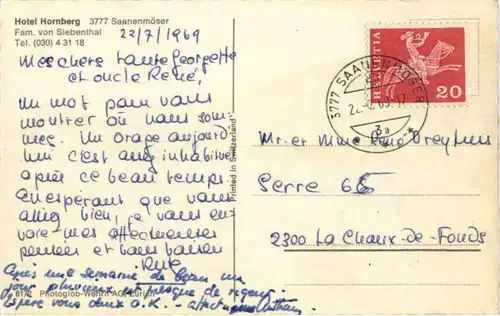 Hotel Hornberg 3777 Saanenmöser
Fam. von Siebenthal
Tel. (030) 4 31 18
22/7/1969
Mes chers tante Georgette
et oncle René
Un mot pour vous
montrer où nous som-
mes. Un orage aujourd
hui c'est inhabituel
après ce beau temps.
En espérant que vous
allez bien, je vous en-
voie mes affectueuses
pensées et bons baisers
Après une semaine de beau un
jour pluvieux est presque de rigueur.
Espère vous deux o.K. -
8172 Photoglob-Wehrli AG, Zürich
Printed in Switzerland
HELVETIA
20
3777 SAANENMÖSER
Mr. et Mme René Dreyfus
Serre 65
2300 La Chaux-de-Fonds